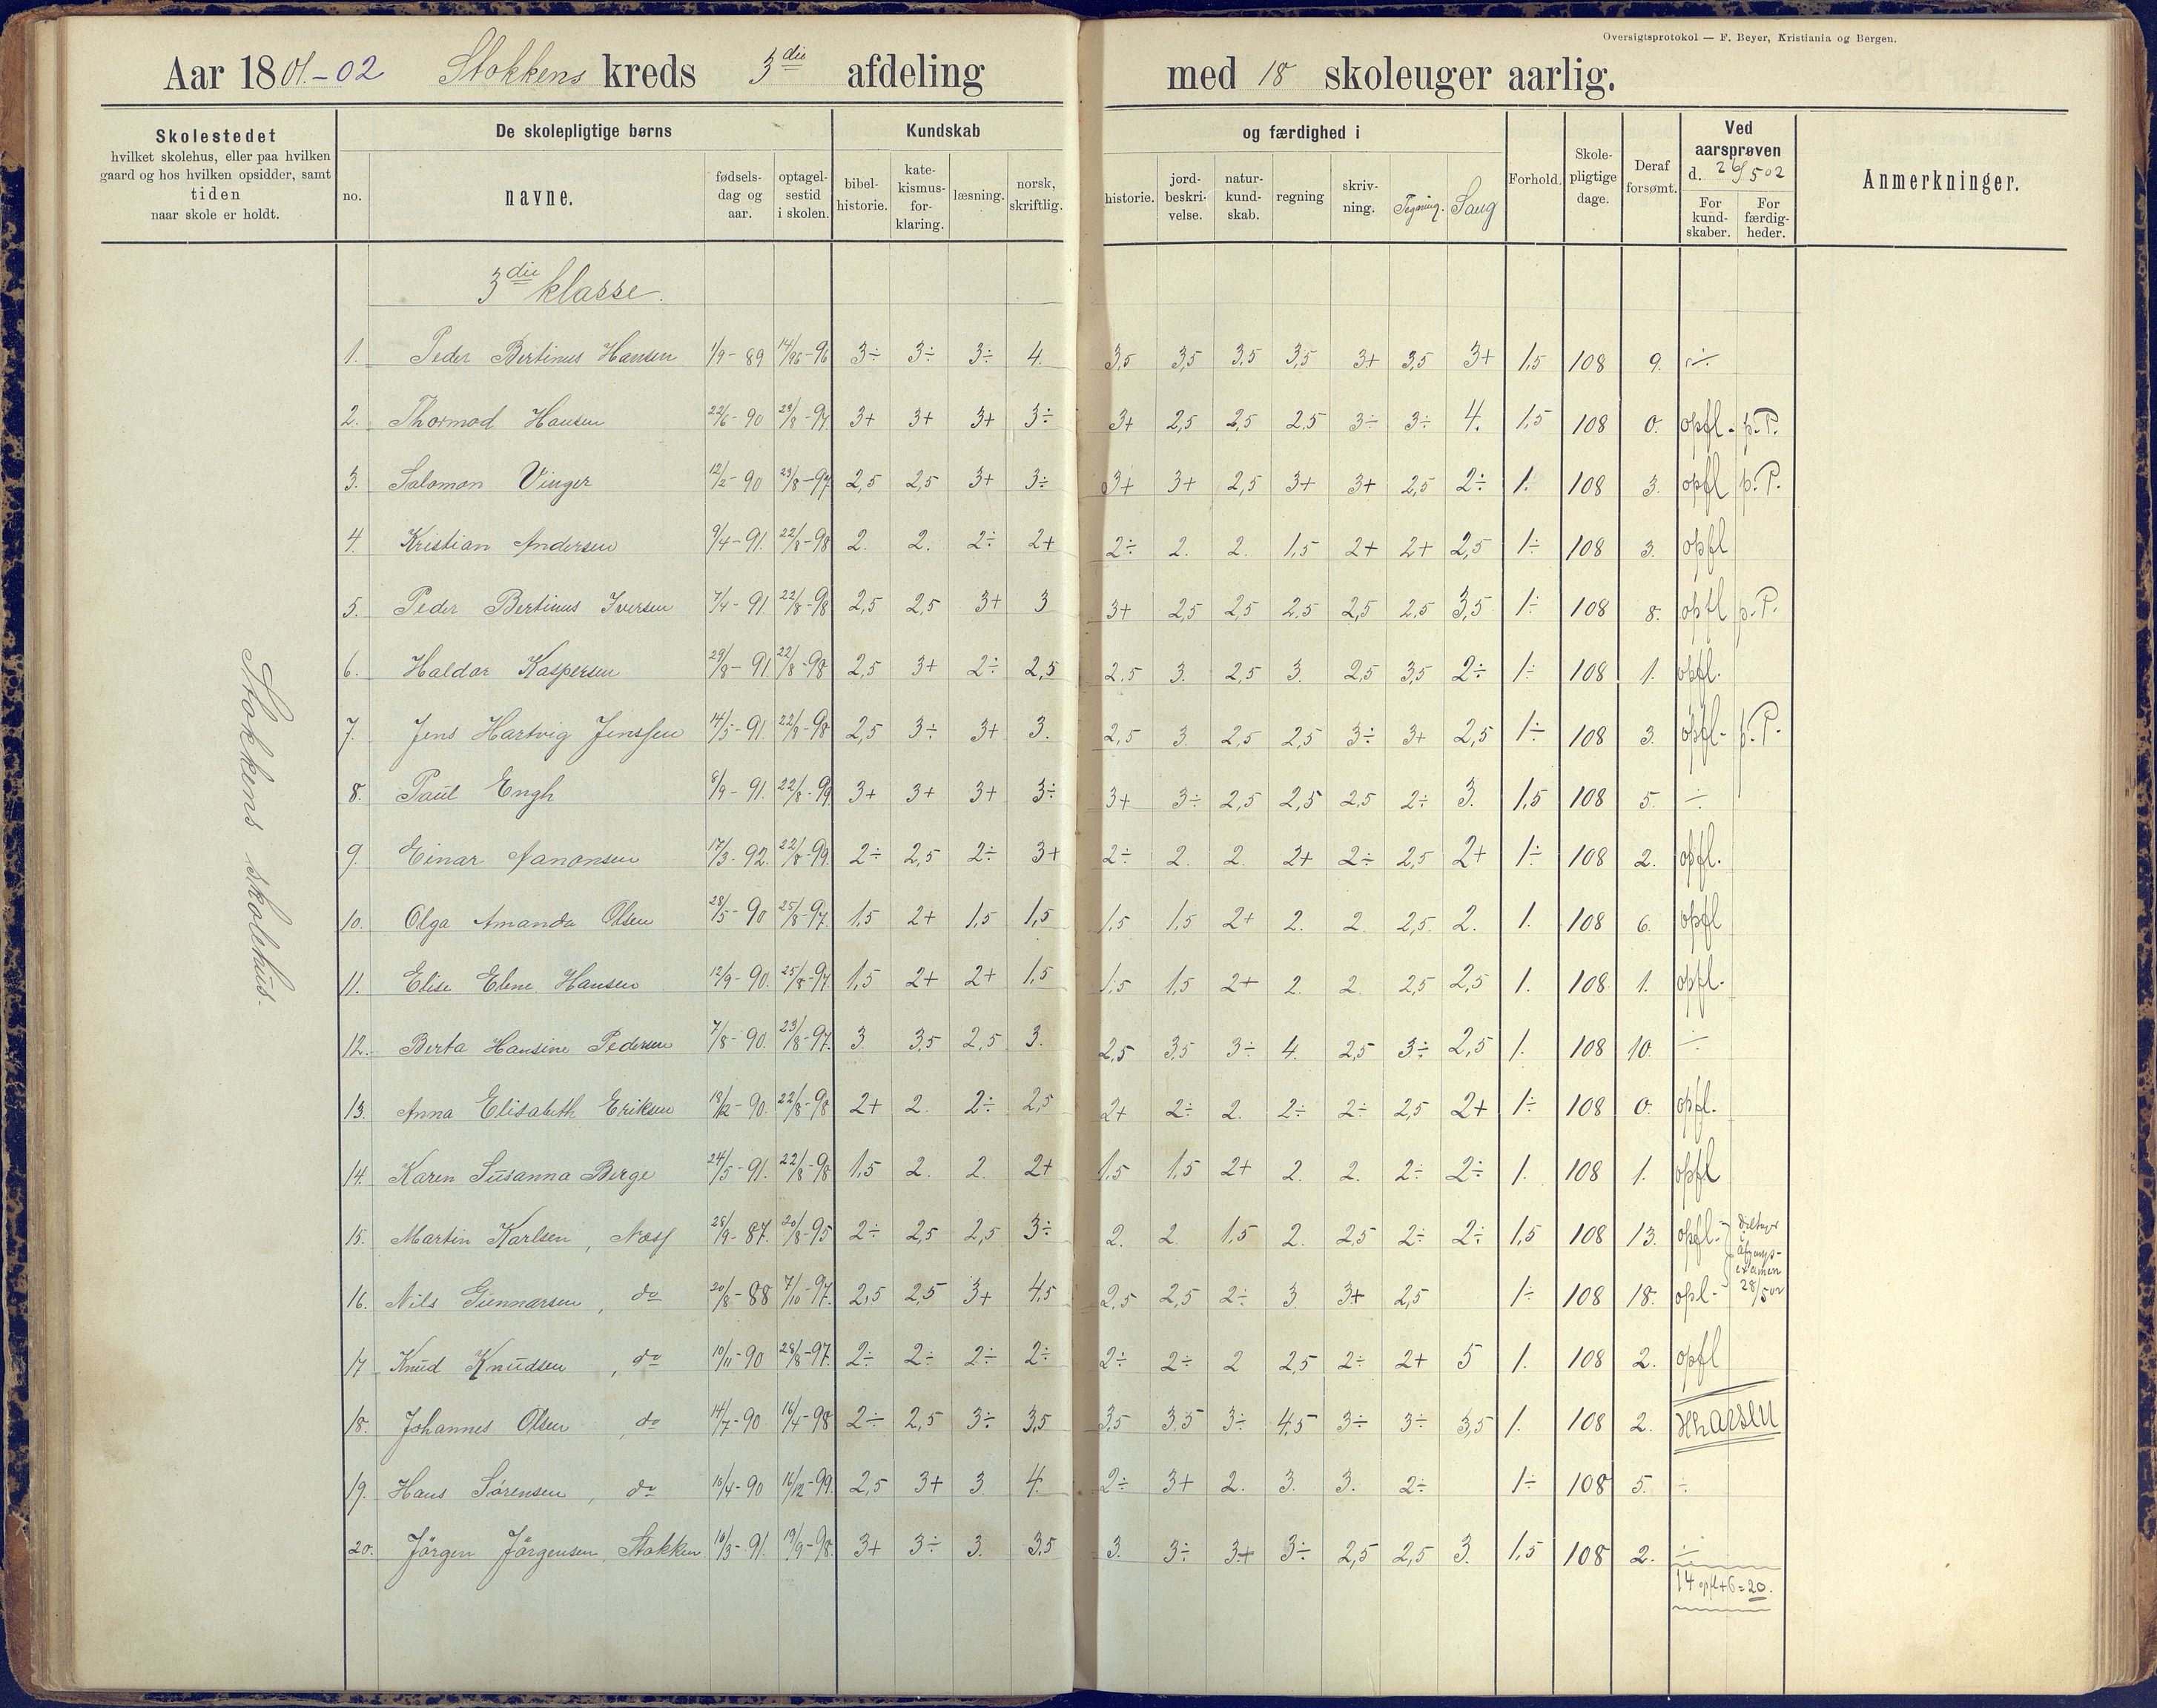 Oversigtsprotokol — F. Beyer, Kristiania og Bergen.
Aar 1801.-02 Stokkens kreds 3die afdeling med 18 skoleuger aarlig.
Skolestedet hvilket skolehus, eller paa hvilken gaard og hos hvilken opsidder, samt tiden naar skole er holdt.
De skolepligtige børns
Kundskab og færdighed i
no. navne. fødselsdag og aar. optagelsestid i skolen. bibelhistorie. katekismusforklaring. læsning. norsk, skriftlig. historie. jordbeskrivelse. naturkundskab. regning skrivning. Tegning. Sang Forhold. Skolepligtige dage. Deraf forsømt. Ved aarsprøven d. 26/5 02 For kundskaber. For færdigheder. Anmerkninger.
Stokkens skolehus.
3die klasse.
1. Peder Bertinus Hansen 1/9-89 14/96-96 3÷ 3÷ 3÷ 4. 3,5 3,5 3,5 3,5 3+ 3,5 3+ 1,5 108 9. ÷
2. Thormod Hansen 22/6-90 23/8-97. 3+ 3+ 3+ 3÷ 3+ 2,5 2,5 2,5 3÷ 3÷ 4. 1,5 108 0. opfl. p.P.
3. Salomon Vinger 12/2-90 23/8-97 2,5 2,5 3+ 3÷ 3+ 3+ 2,5 3+ 3+ 2,5 2÷ 1. 108 3. opfl p.P.
4. Kristian Andersen 9/4-91. 22/8-98 2. 2. 2÷ 2+ 2÷ 2. 2. 1,5 2+ 2+ 2,5 1÷ 108 3. opfl
5. Peder Bertinus Iversen 7/4-91. 22/8-98 2,5 2,5 3+ 3 3+ 2,5 2,5 2,5 2,5 2,5 3,5 1÷ 108 8. opfl p.P.
6. Haldor Kaspersen 29/8-91 22/8-98 2,5 3+ 2÷ 2,5 2,5 3. 2,5 3. 2,5 3,5 2÷ 1÷ 108 1. opfl.
7. Jens Hartvig Jenssen 14/5-91. 22/8-98 2,5 3÷ 3+ 3. 2,5 3. 2,5 2,5 3÷ 3+ 2,5 1÷ 108 3. opfl- p.P.
8. Paul Engh 8/9-91. 22/8-99 3+ 3+ 3+ 3÷ 3+ 3÷ 2,5 2,5 2,5 2÷ 3. 1,5 108 5. ÷
9. Einar Aanonsen 17/3-92. 22/8-99. 2÷ 2,5 2÷ 3+ 2÷ 2. 2. 2+ 2÷ 2,5 2+ 1÷ 108 2. opfl.
10. Olga Amanda Olsen 28/5-90 25/8-97. 1,5 2+ 1,5 1,5 1,5 1,5 2+ 2. 2. 2,5. 2. 1. 108 6. opfl
11. Elise Elene Hansen 12/9-90. 25/8-97. 1,5 2+ 2+ 1,5 1,5 1,5 2+ 2. 2. 2,5 2,5 1. 108 1. opfl-
12. Berta Hansine Pedersen 7/8-90. 23/8-97. 3 3,5 2,5 3. 2,5 3,5 3÷ 4. 2,5 3÷ 2,5 1. 108 10. ÷
13. Anna Elisabeth Eriksen 18/12-90. 22/8-98 2+ 2. 2÷ 2,5 2+ 2÷ 2. 2÷ 2÷ 2,5 2+ 1÷ 108 0. opfl.
14. Karen Susanna Berge 24/5-91. 22/8-98 1,5 2. 2. 2+ 1,5 1,5 2+ 2. 2. 2÷ 2÷ 1. 108 1. opfl
15. Martin Karlsen, Næss 28/9-87. 20/8-95 2÷ 2,5 2,5 3÷ 2. 2. 1,5 2. 2,5 2÷ 2÷ 1,5 108 13. opfl. afgangs-examen 28/5 02
16. Nils Gunnarsen, do 20/8-88 7/10-97. 2,5 2,5 3+ 4,5 2,5 2,5 2÷ 3 3+ 2,5 1÷ 108 18. opl-
17 Knud Knudsen, do 10/11-90 28/8-97. 2÷ 2÷ 2÷ 2÷ 2÷ 2÷ 2 2,5 2÷ 2+ 5 1. 108 2. opfl
18. Johannes Olsen, do 14/7-90 16/4-98 2÷ 2,5 3÷ 3,5 3,5 3,5 3÷ 4,5 3÷ 3÷ 3,5 1. 108 2.
19. Hans Sørensen, do 10/4-90 16/12-99. 2,5 3+ 3. 4. 2÷ 3+ 2. 3. 3. 2÷ 1÷ 108 5. ÷
20. Jörgen Jörgensen, Stokken 10/3-91. 19/9-98. 3+ 3÷ 3. 3,5 3. 3÷ 3+ 3÷ 2,5 2,5 3. 1,5 108 2. ÷
14 opfl+6=20.